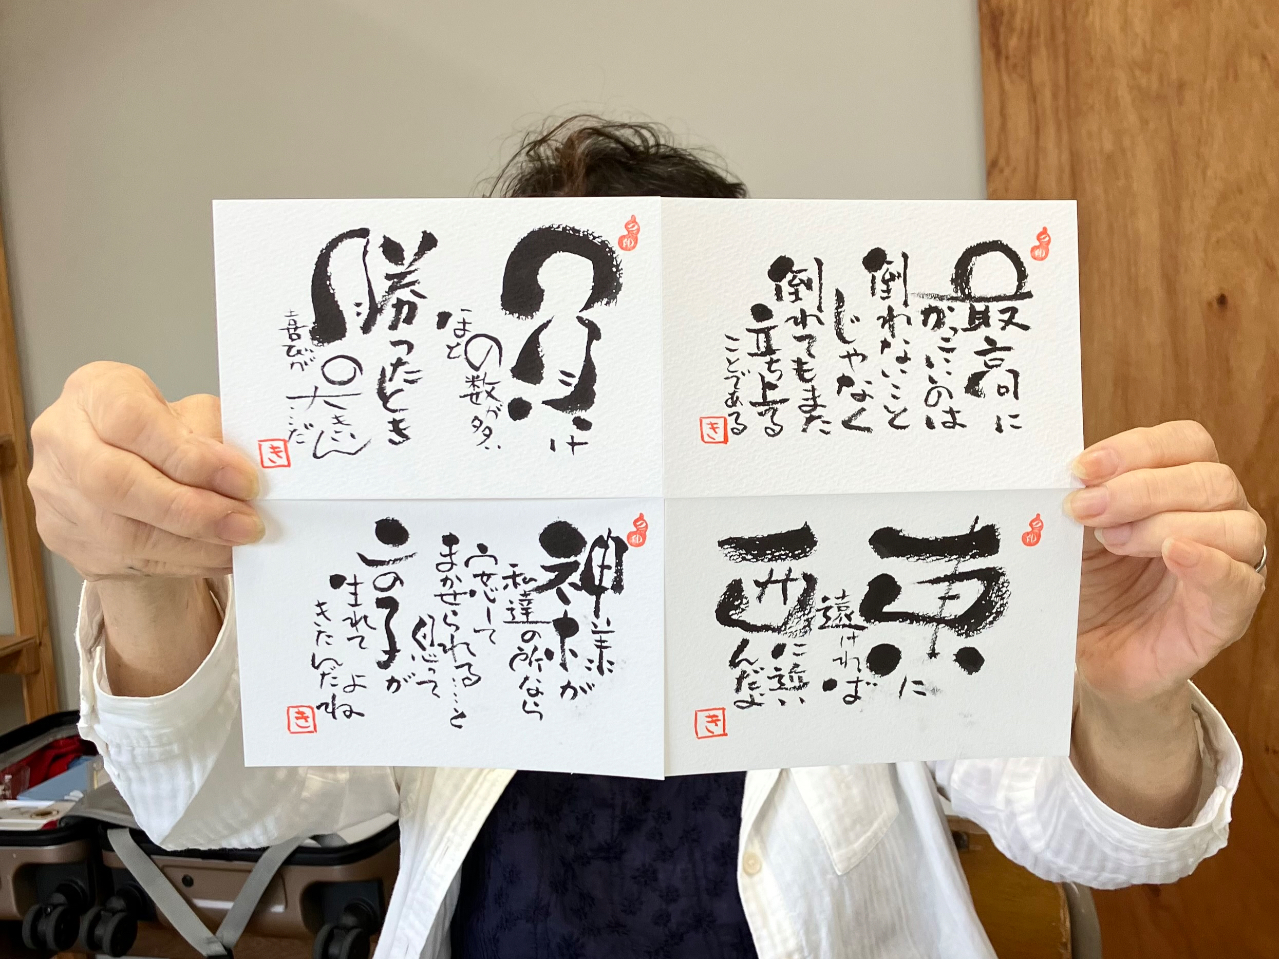 最高に
かっこいいのは
倒れないこと
じゃなく
倒れてもまた
立ち上る
ことである
き
負け
の数が多い
ほど
勝ったとき
の
喜びが
大きいん
だ
き
東に
遠ければ
西
に近い
んだよ
き
神様が
私達の所なら
安心して
まかせられる…と
思って
この子が
生れて
きたんだよね
き